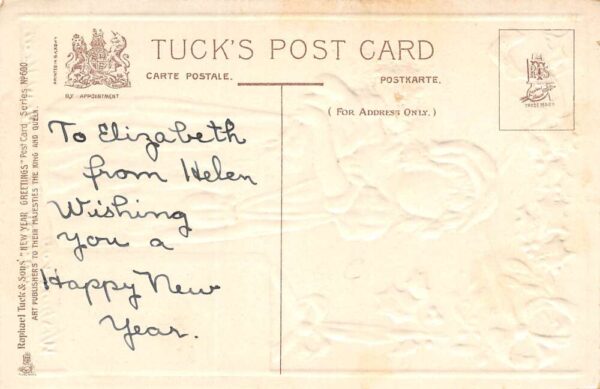 TUCK'S POST CARD
CARTE POSTALE.
POSTKARTE.
BY APPOINTMENT
(FOR ADDRESS ONLY.)
TRADE MARK
To Elizabeth
from Helen
Wishing
you a
Happy New
Year.
Raphael Tuck & Sons' "NEW YEAR GREETINGS" Post Card, Series Nº 600
ART PUBLISHERS TO THEIR MAJESTIES THE KING AND QUEEN.